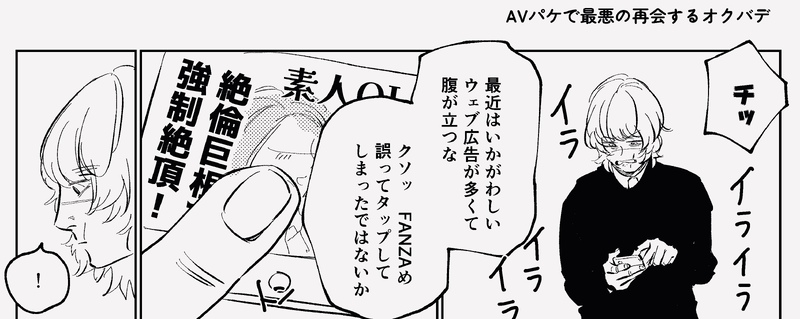 AVパケで最悪の再会するオクバデ
チッ
イラ
イライラ
イライラ
最近はいかがわしい
ウェブ広告が多くて
腹が立つな
クソッ　FANZAめ
誤ってタップして
しまったではないか
素人OL
絶倫巨根
強制絶頂！
トン
！